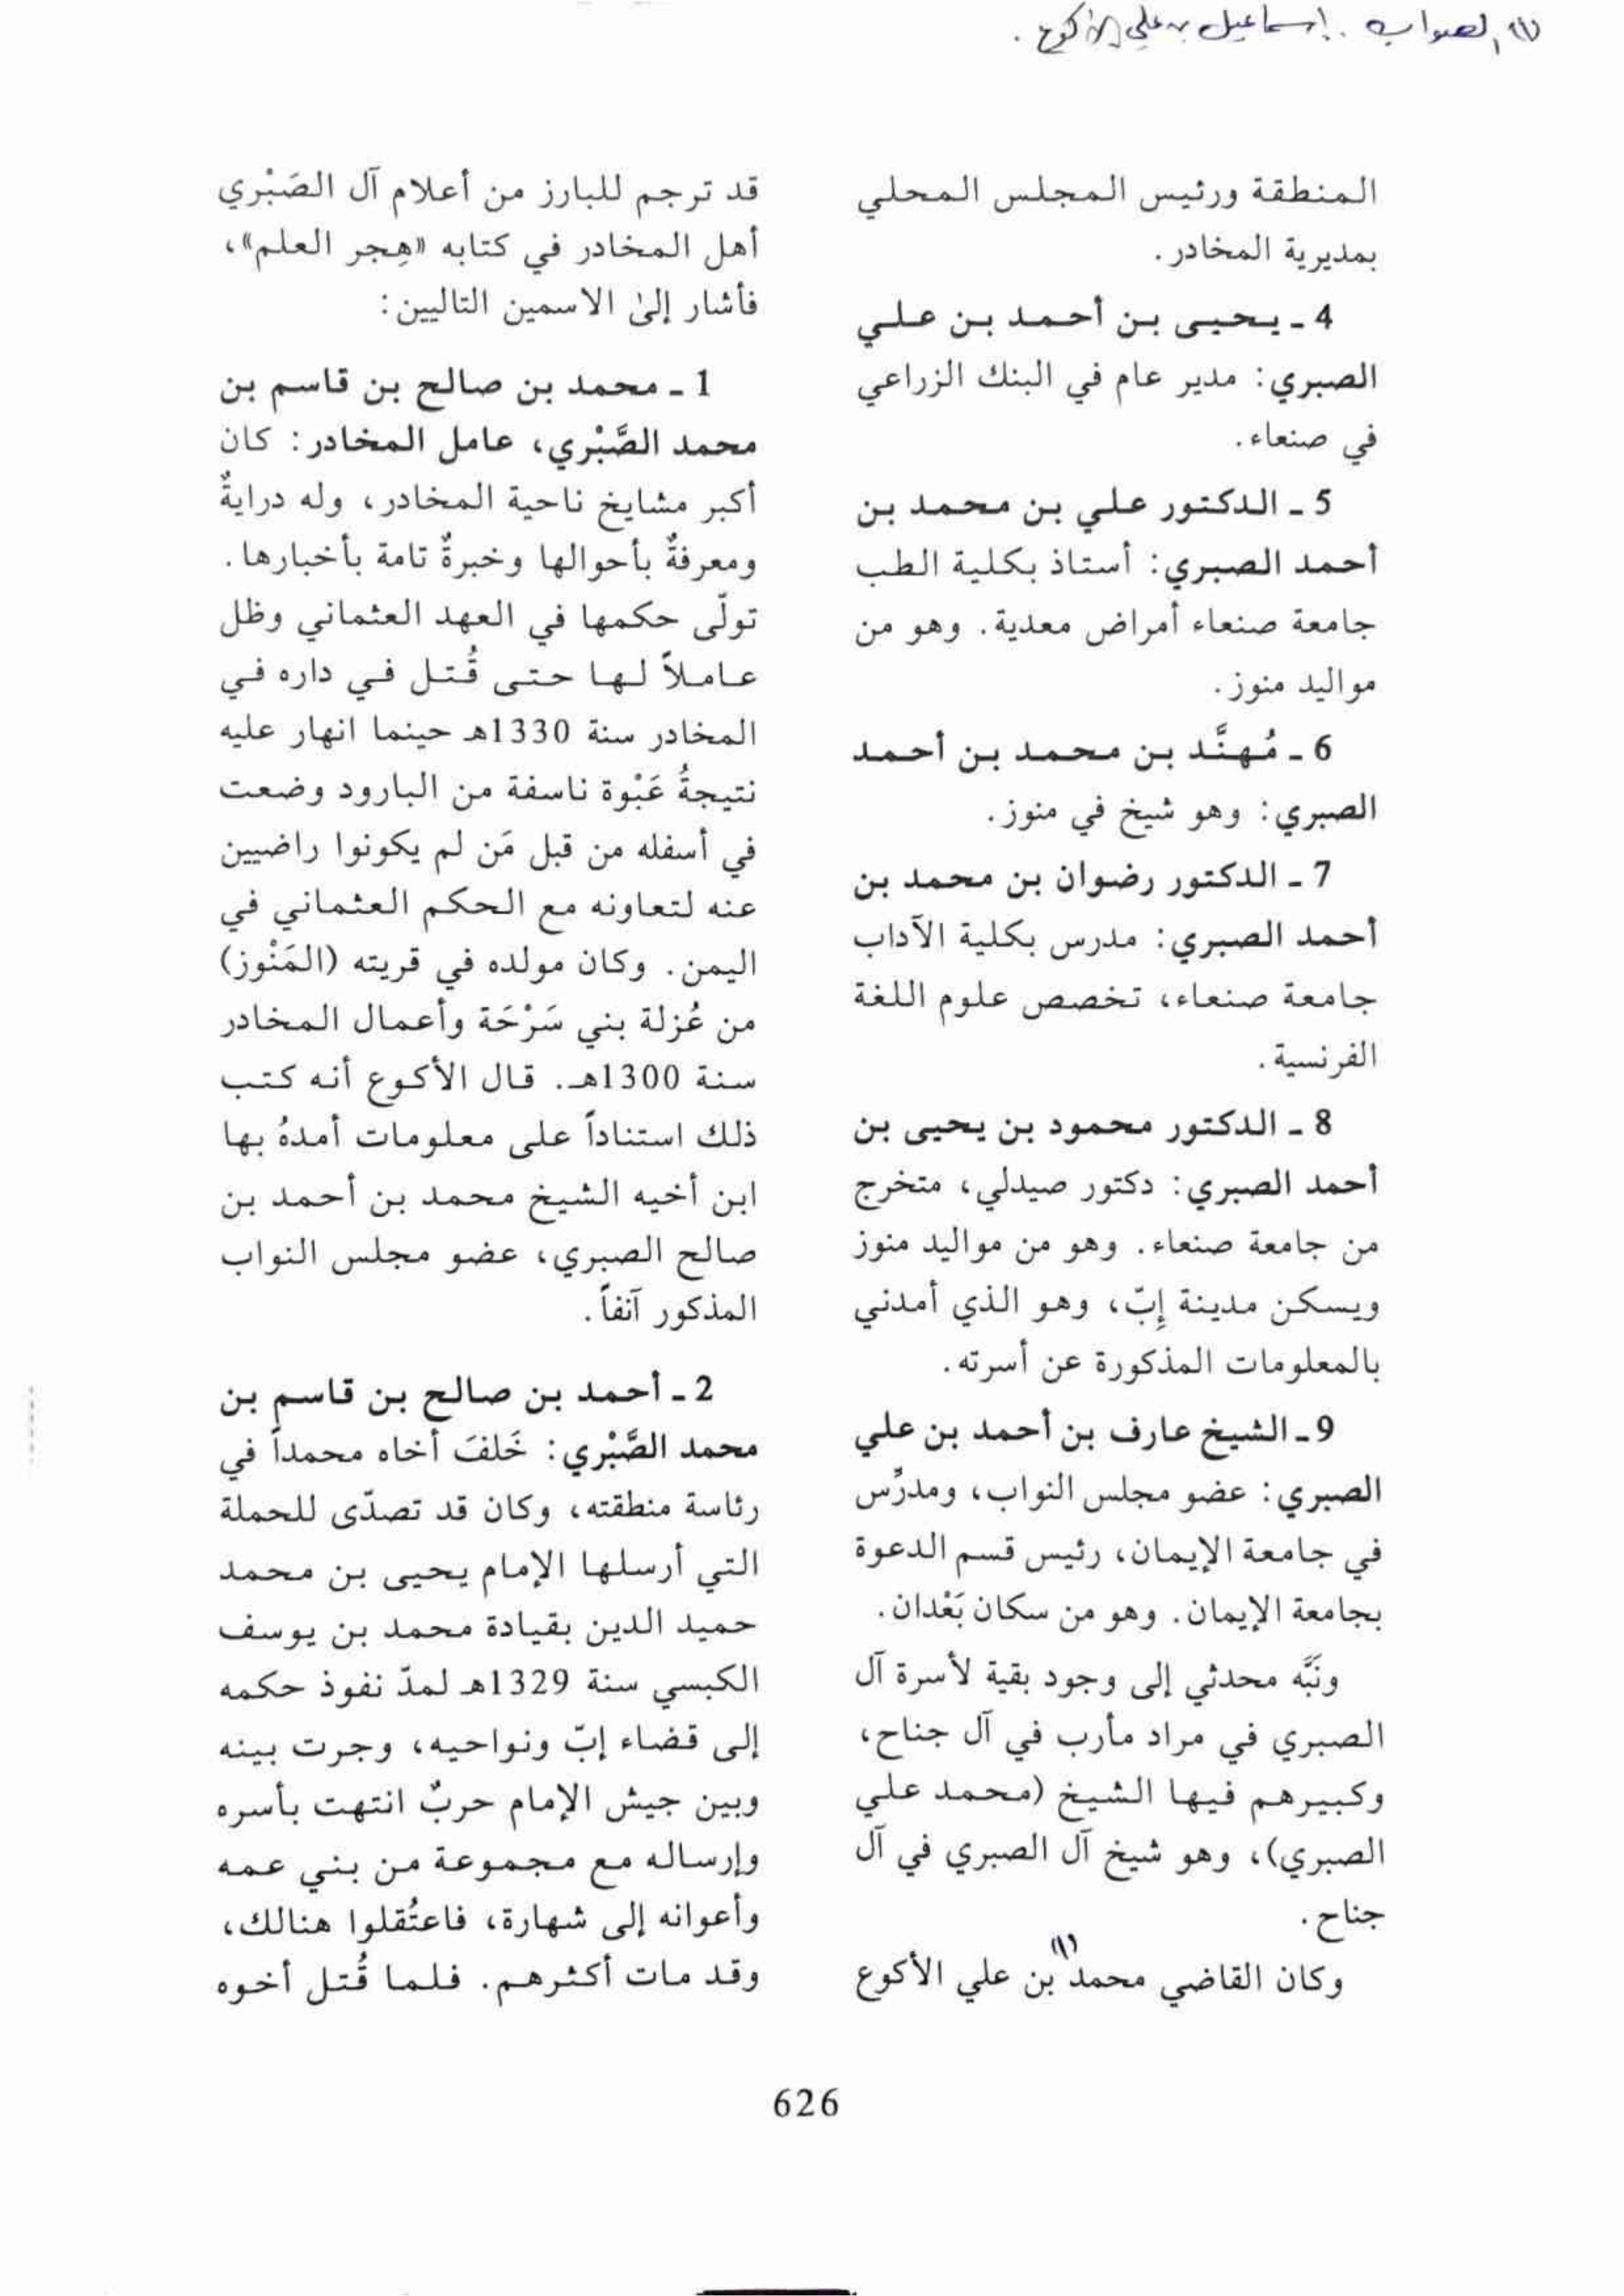 (١) الصواب. إسماعيل بن علي الأكوع.
المنطقة ورئيس المجلس المحلي
بمديرية المخادر.
4 ـ يحيى بن أحمد بن علي
الصبري: مدير عام في البنك الزراعي
في صنعاء.
5 ـ الدكتور علي بن محمد بن
أحمد الصبري: أستاذ بكلية الطب
جامعة صنعاء أمراض معدية. وهو من
مواليد منوز.
6 ـ مُهنَّد بن محمد بن أحمد
الصبري: وهو شيخ في منوز.
7 ـ الدكتور رضوان بن محمد بن
أحمد الصبري: مدرس بكلية الآداب
جامعة صنعاء، تخصص علوم اللغة
الفرنسية.
8 ـ الدكتور محمود بن يحيى بن
أحمد الصبري: دكتور صيدلي، متخرج
من جامعة صنعاء. وهو من مواليد منوز
ويسكن مدينة إبّ، وهو الذي أمدني
بالمعلومات المذكورة عن أسرته.
9 ـ الشيخ عارف بن أحمد بن علي
الصبري: عضو مجلس النواب، ومدرّس
في جامعة الإيمان، رئيس قسم الدعوة
بجامعة الإيمان. وهو من سكان بَعْدان.
ونبَّه محدثي إلى وجود بقية لأسرة آل
الصبري في مراد مأرب في آل جناح،
وكبيرهم فيها الشيخ (محمد علي
الصبري)، وهو شيخ آل الصبري في آل
جناح.
وكان القاضي محمد(١) بن علي الأكوع
قد ترجم للبارز من أعلام آل الصَبْري
أهل المخادر في كتابه «هِجر العلم»،
فأشار إلىٰ الاسمين التاليين:
1 ـ محمد بن صالح بن قاسم بن
محمد الصَّبْري، عامل المخادر: كان
أكبر مشايخ ناحية المخادر، وله درايةٌ
ومعرفةٌ بأحوالها وخبرةٌ تامة بأخبارها.
تولّى حكمها في العهد العثماني وظل
عاملاً لها حتى قُتل في داره في
المخادر سنة 1330هـ حينما انهار عليه
نتيجةُ عَبْوة ناسفة من البارود وضعت
في أسفله من قبل مَن لم يكونوا راضيين
عنه لتعاونه مع الحكم العثماني في
اليمن. وكان مولده في قريته (المَنْوز)
من عُزلة بني سَرْحَة وأعمال المخادر
سنة 1300هـ. قال الأكوع أنه كتب
ذلك استناداً على معلومات أمدهُ بها
ابن أخيه الشيخ محمد بن أحمد بن
صالح الصبري، عضو مجلس النواب
المذكور آنفاً.
2 ـ أحمد بن صالح بن قاسم بن
محمد الصَّبْري: خَلفَ أخاه محمداً في
رئاسة منطقته، وكان قد تصدّى للحملة
التي أرسلها الإمام يحيى بن محمد
حميد الدين بقيادة محمد بن يوسف
الكبسي سنة 1329هـ لمدّ نفوذ حكمه
إلى قضاء إبّ ونواحيه، وجرت بينه
وبين جيش الإمام حربٌ انتهت بأسره
وإرساله مع مجموعة من بني عمه
وأعوانه إلى شهارة، فاعتُقلوا هنالك،
وقد مات أكثرهم. فلما قُتل أخوه
626